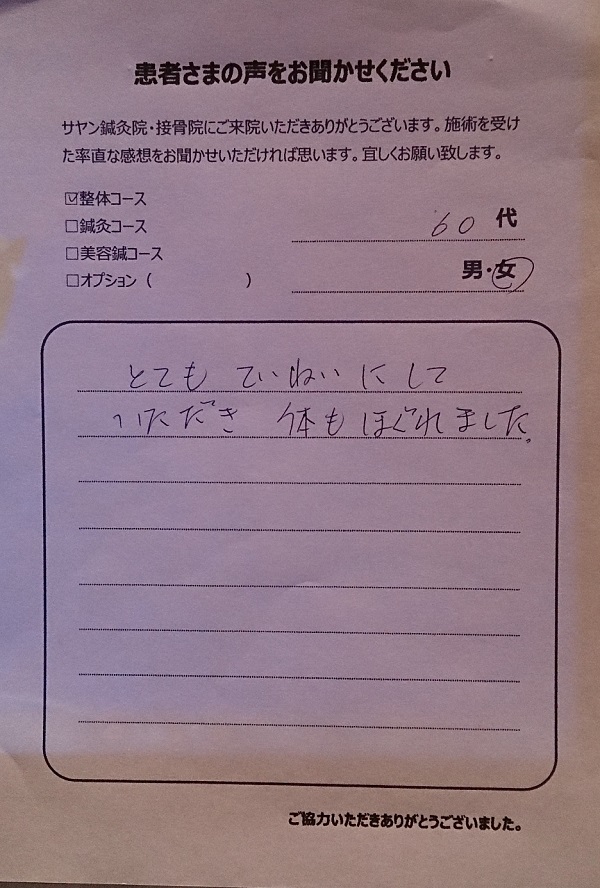 患者さまの声をお聞かせください
サヤン鍼灸院・接骨院にご来院いただきありがとうございます。施術を受け
た率直な感想をお聞かせいただければ思います。宜しくお願い致します。
☑整体コース
□鍼灸コース
□美容鍼コース
□オプション（　　　　　　）
60 代
男・女
とても ていねい に して
いただき 体も ほぐれました。
ご協力いただきありがとうございました。